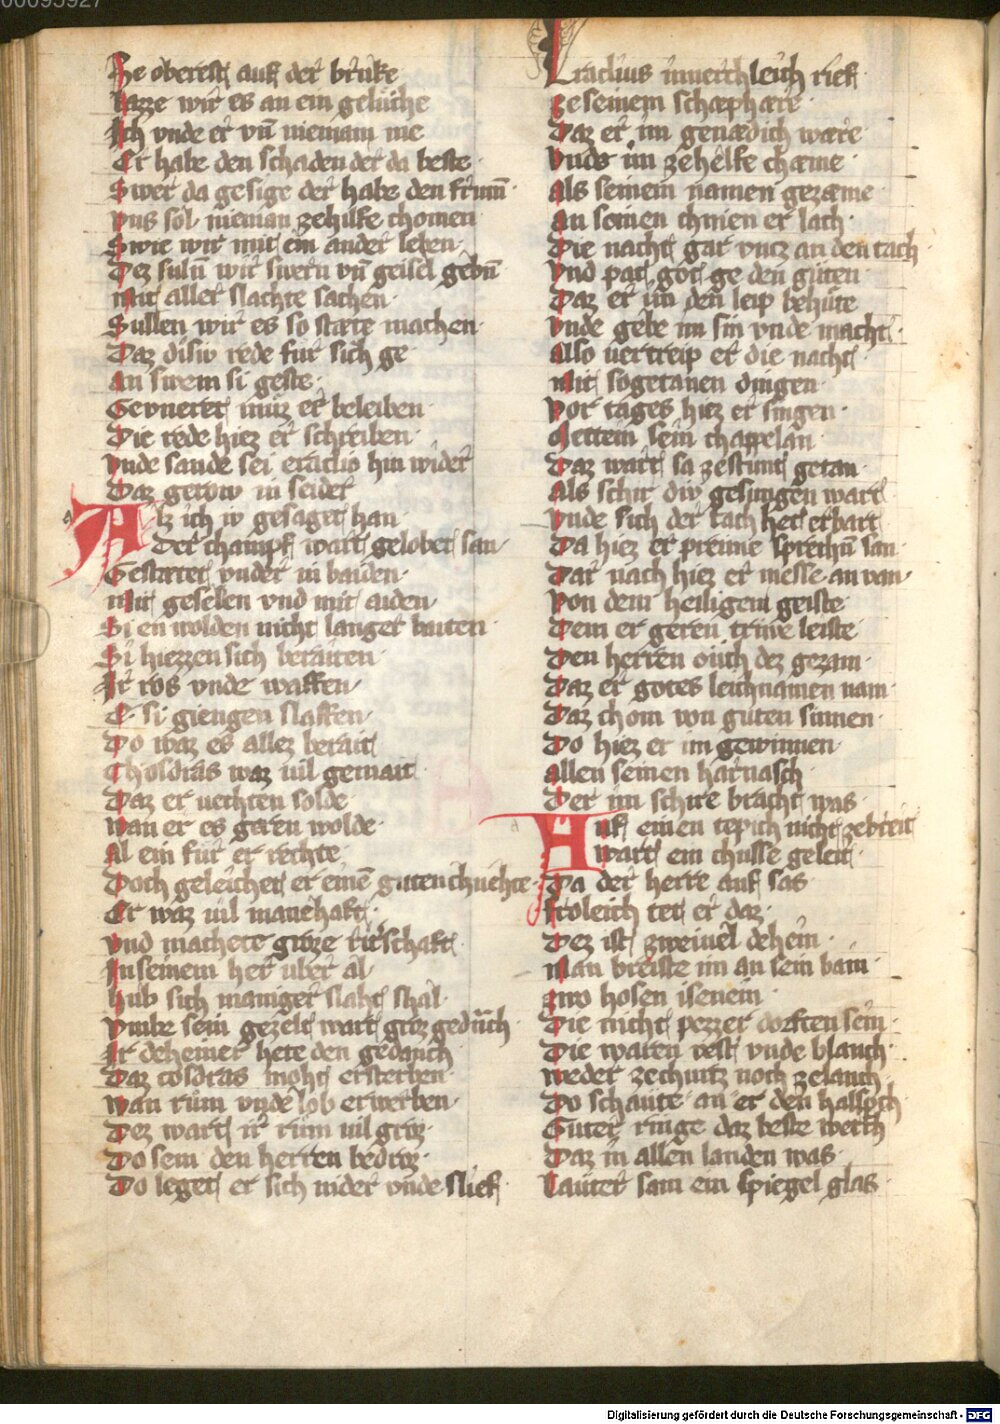 Ze oberist auf der brůke
Lazze wir es an ein gelůche
Ich vnde er vn̄ nieman me
Er habe den schaden der da beste
Swer da gesige der habe den frum̄
Vns sol nieman zehilfe chomen
Swie wir mit ein ander leben
Dez suln̄ wir swern vn̄ geisel gebn̄
Mit aller slachte sachen
Sullen wir es so stæte machen
Daz disiv rede fur sich ge
An swem si geste
Gevneret můz er beleiben
Die rede hiez er schreiben
Vnde sande sei eraclio hin wider
Daz gerow in seider
Alz ich iv gesaget han
Der champf wart gelobet san
Gestætet vnder in baiden
Mit geselen vnd mit aiden
Si en wolden nicht langer baiten
Si hiezzen sich beraiten
Ir ros vnde waffen
E si giengen slaffen
Do waz es allez berait
Chosdras waz uil gemait
Daz er uechten solde
Wan er es geren wolde
Al ein fur er rechte
Doch geleichet er eine᷒ guten chnehte
Er waz uil manehaft
Vnd machete groze rit'schaft
In seinem her uber al
Hub sich maniger slaht shal
Vmbe sein gezelt wart groz gedůch
Ir deheiner hete den gedanch
Daz cosdras moht ersterben
Wan rům vnde lob erwerben
Dez wart ir rům uil groz
Do sein den herren bedroz
Do leget er sich nider vnde slief
Eraclius innerchleich rief
Ze seinem schæphære
Daz er im genædich wære
Vnde im zehelfe chæme
Als seinem namen gezæme
An seinen chnien er lach
Die nacht gar vntz an den tach
Vnd pat got ge den guten
Daz er im den leip behůte
Vnde gebe im sin vnde macht
Also uertreip er die nacht
Mit sogetanen dingen
Vor tages hiez er singen
Mettein sein chappelan
Daz wart sa zestunt getan
Als schir div gesungen wart
Vnde sich der tach het erbart
Da hiez er preime sprechn̄ san
Dar nach hiez er messe an van
Von dem heiligem geiste
Dem er geren triwe leiste
Den herren ouch dez gezam
Daz er gotes leichnamen nam
Daz chom von guten sinnen
Do hiez er im gewinnen
Allen seinen harnasch
Der im schire bracht was
Auf einen tepich nicht zebreit
Wart ein chusse geleit
Da der herre auf sas
Froleich tet er daz
Dez ist zweiuel dehein
Man breiste im an sein bain
Zwo hosen isenein
Die nicht pezzer dorften sein
Die waren uest vnde blanch
Weder zechurtz noch zelanch
Do schaute an er den halsperch
Guter ringe daz beste werch
Daz in allen landen was
Lauter sam ein spiegel glas
Digitalisierung gefördert durch die Deutsche Forschungsgemeinschaft - DFG